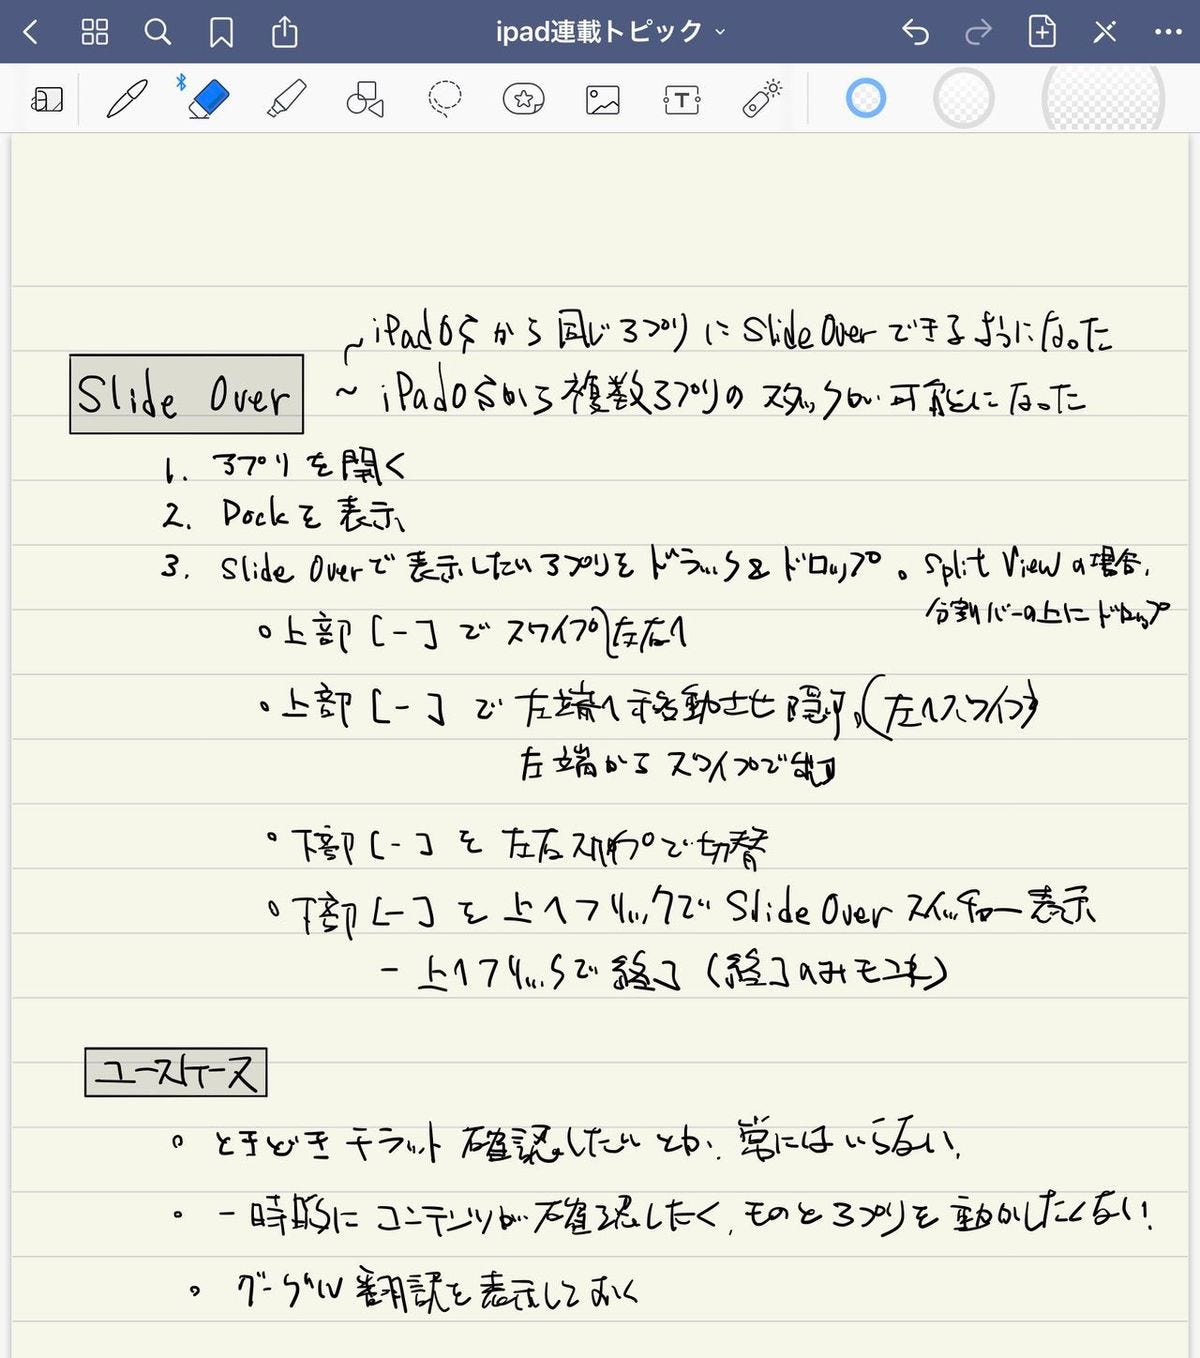 ipad連載トピック
~ iPadOSから同じアプリにSlide Overできるようになった
Slide Over
~ iPadOSから複数アプリのスタックが可能になった
1. アプリを開く
2. Dockを表示
3. Slide Overで表示したいアプリをドラッグ&ドロップ。Split Viewの場合,
分割バーの上にドロップ
○上部[-]でスワイプ 左右へ
○上部[-]で左端へ移動させ隠す。(左へスワイプ)
左端からスワイプで
○下部[-]を左右スワイプで切替
○下部[-]を上へフリックでSlide Overスイッチャー表示
- 上へフリックで終了(終了のみ
ユースケース
○ときどきチラッと確認したいとか、常にはいらない。
○一時的にコンテンツが確認したく、ものとアプリを動かしたくない。
○グーグル翻訳を表示しておく
T